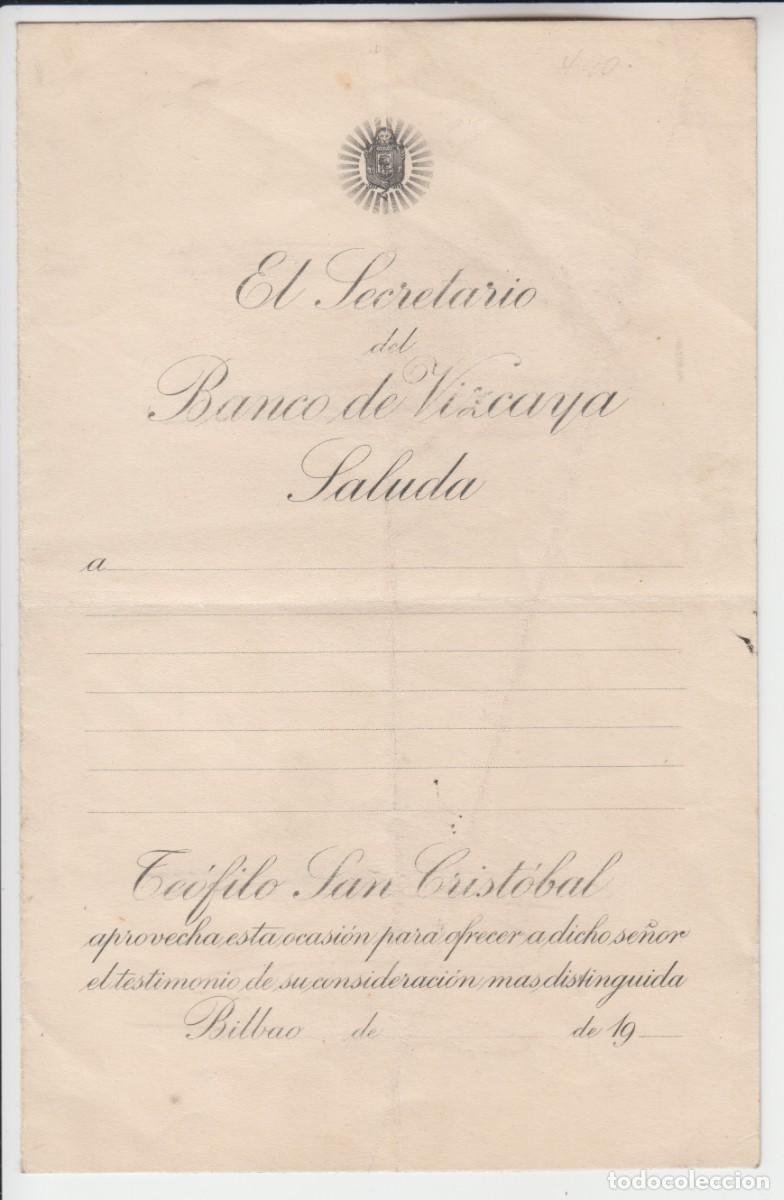 El Secretario
del
Banco de Vizcaya
Saluda
a
Teófilo San Cristóbal
aprovecha esta ocasión para ofrecer a dicho señor
el testimonio de su consideración mas distinguida
Bilbao de de 19
todocoleccion